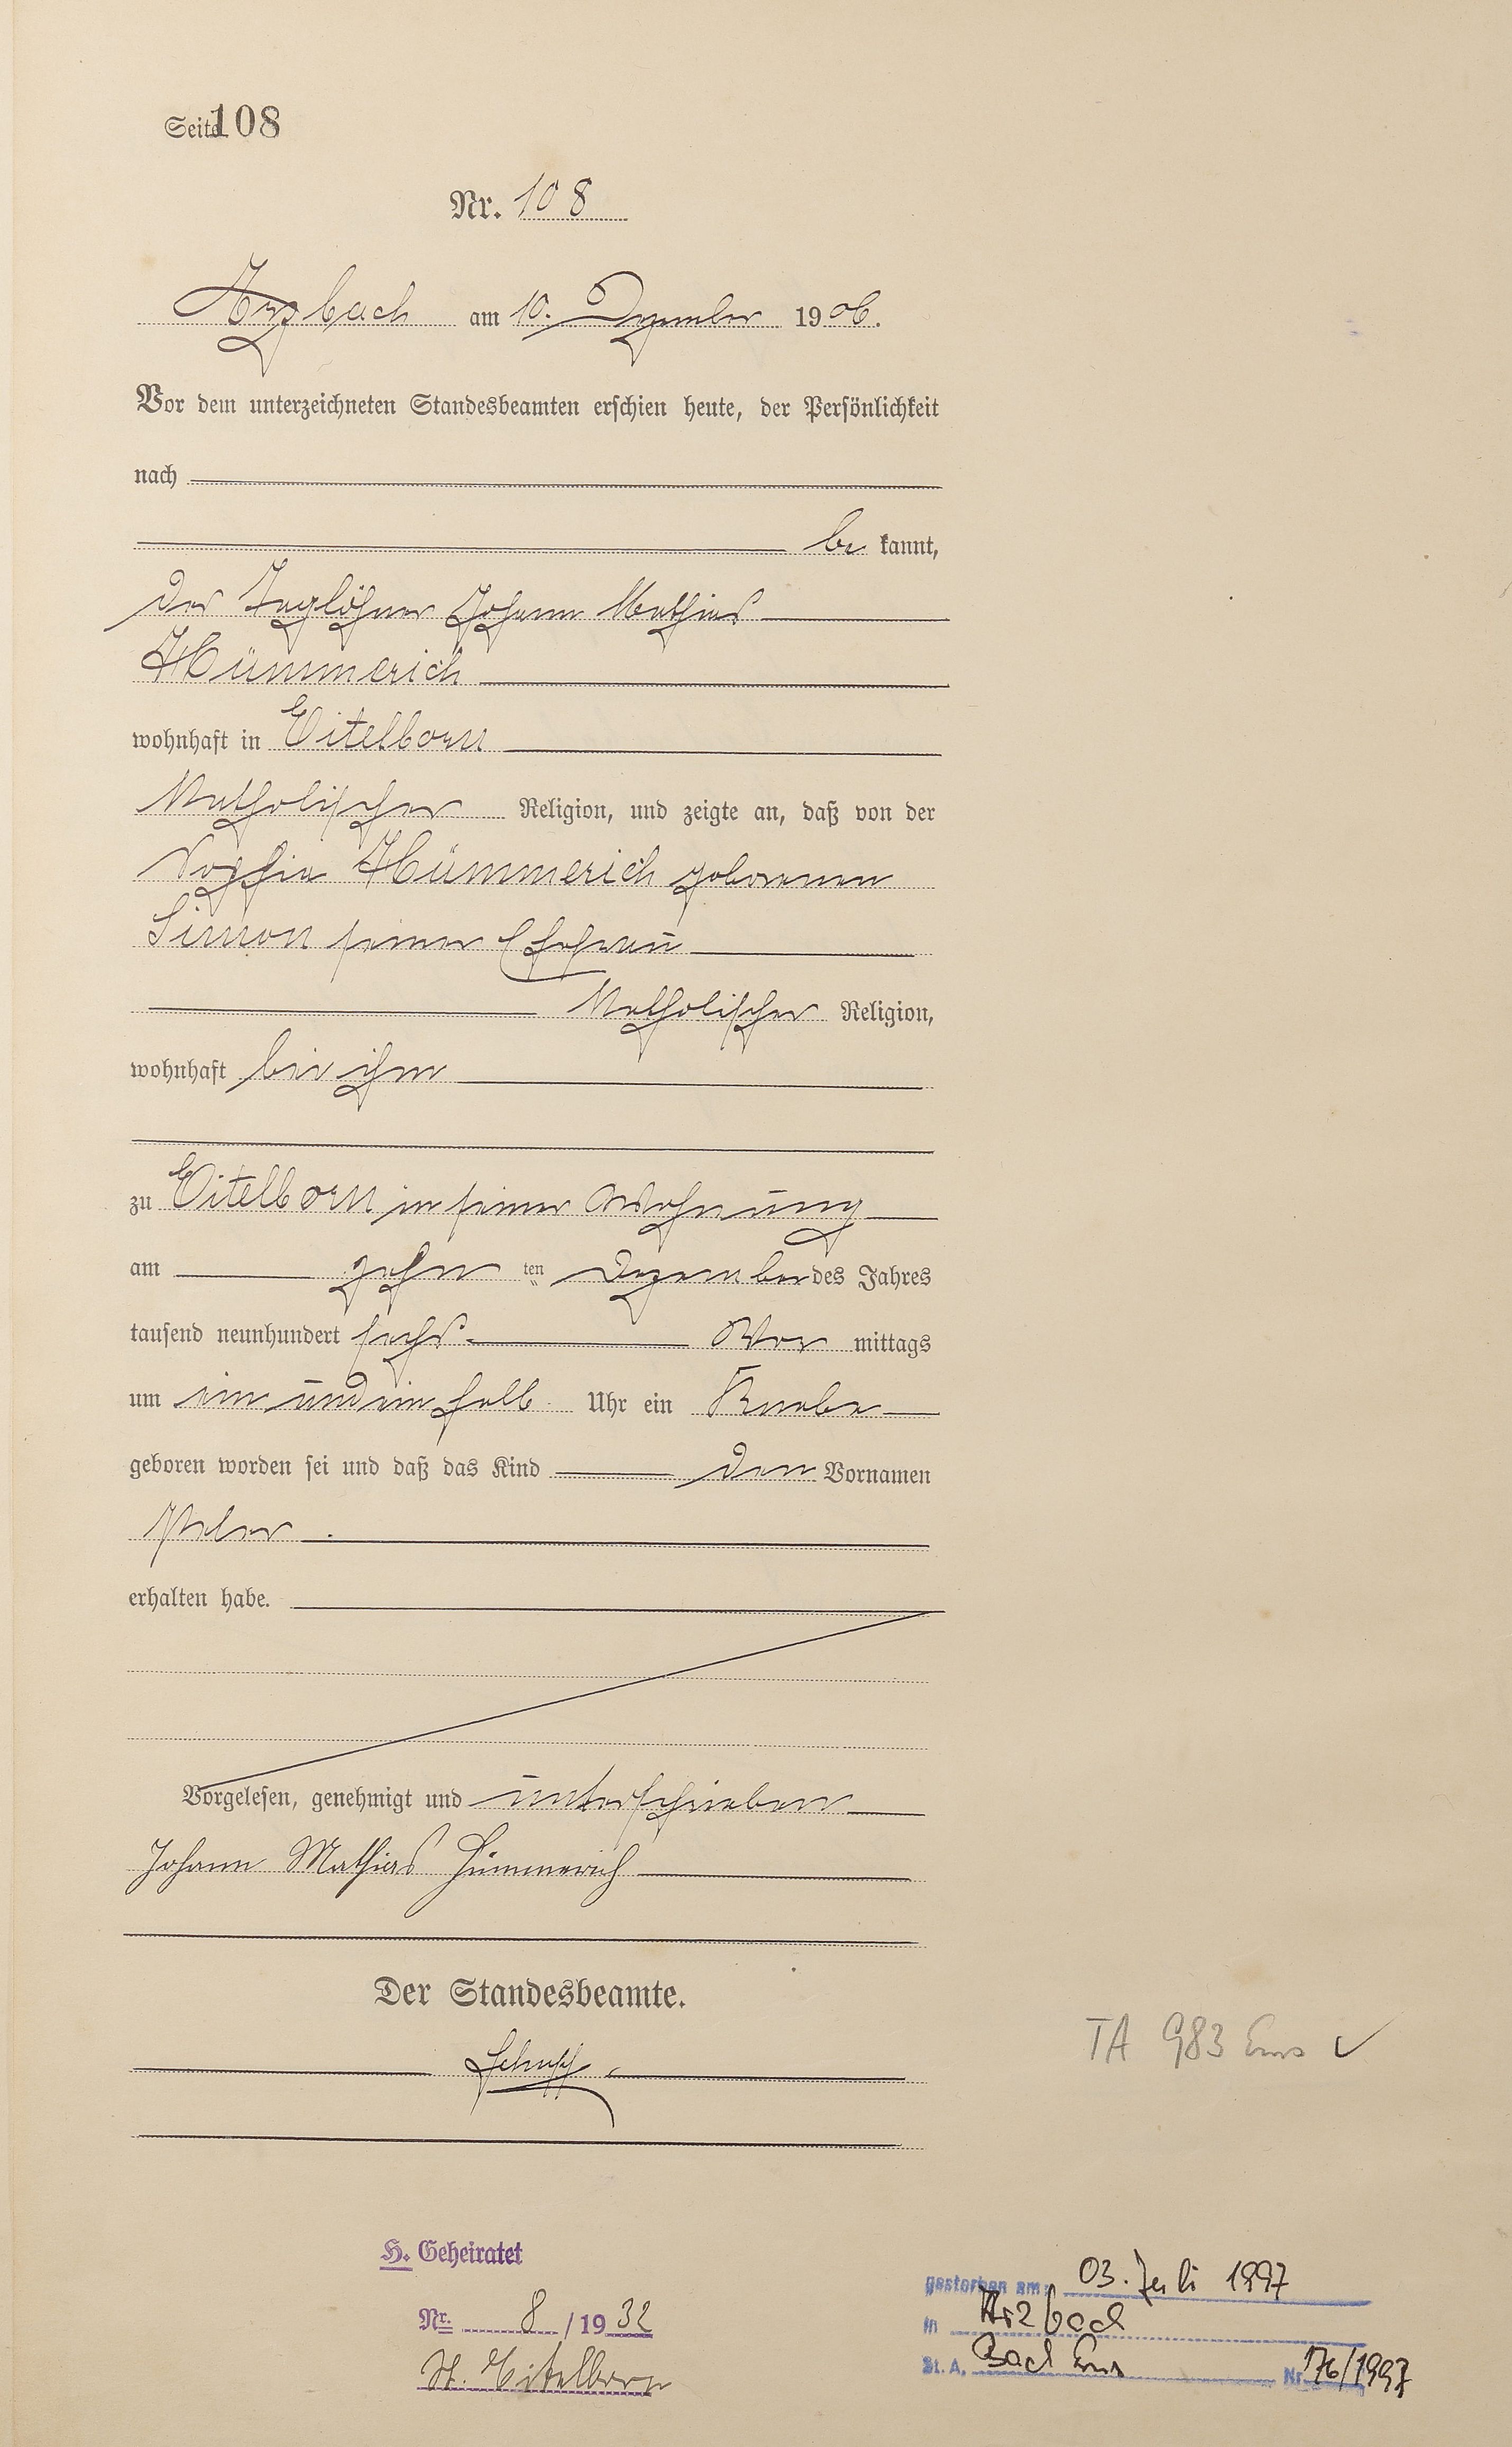 Seite 108
Nr. 108
Arzbach am 10. Dezember 1906.
Vor dem unterzeichneten Standesbeamten erschien heute, der Persönlichkeit
nach
be kannt,
der Taglöhner Johann Mathias
Hümmerich
wohnhaft in Eitelborn
katholischer Religion, und zeigte an, daß von der
Sophia Hümmerich geborenen
Simon seiner Ehefrau
katholischer Religion,
wohnhaft bei ihm
zu Eitelborn in seiner Wohnung
am zehn ten Dezember des Jahres
tausend neunhundert sechs Vor mittags
um ein und ein halb Uhr ein Knabe
geboren worden sei und daß das Kind den Vornamen
Peter.
erhalten habe.
Vorgelesen, genehmigt und unterschrieben
Johann Mathias Hümmerich
Der Standesbeamte.
TA 983 Ems ✓
H. Geheiratet
Nr. 8 / 1932
St. Eitelborn
gestorben am: 03. Juli 1997
in Arzbach
St. A. Bad Ems Nr. 176/1997